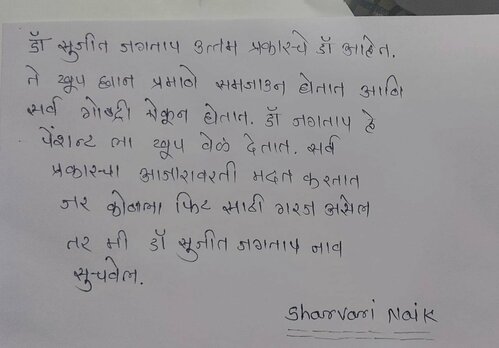 डॉ सुजीत जगताप उत्तम प्रकारचे डॉ आहेत.
ते खूप छान प्रमाणे समजाउन होतात आणि
सर्व गोष्टी ऐकून होतात. डॉ जगताप हे
पेंशन्ट ला खूप वेळ देतात. सर्व
प्रकारच्या आजारावरती मदत करतात
जर कोणाला फिट साठी गरज असेल
तर मी डॉ सुजीत जगताप नाव
सुचवेल.
Sharvari Naik